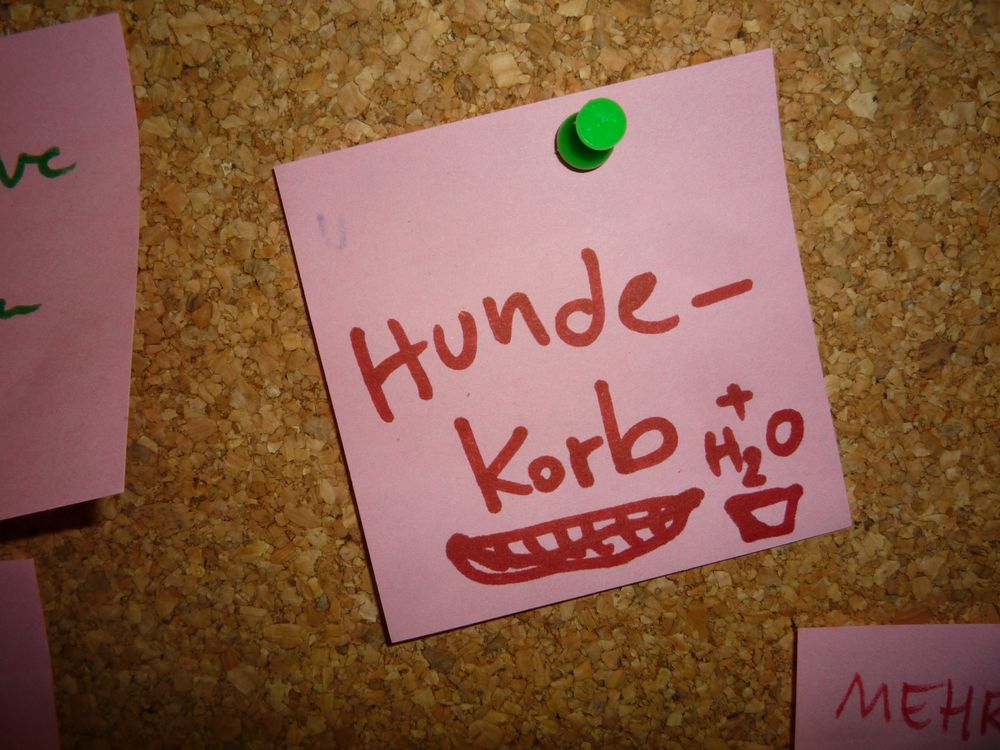 Hunde-
Korb
+
H₂O
MEHR